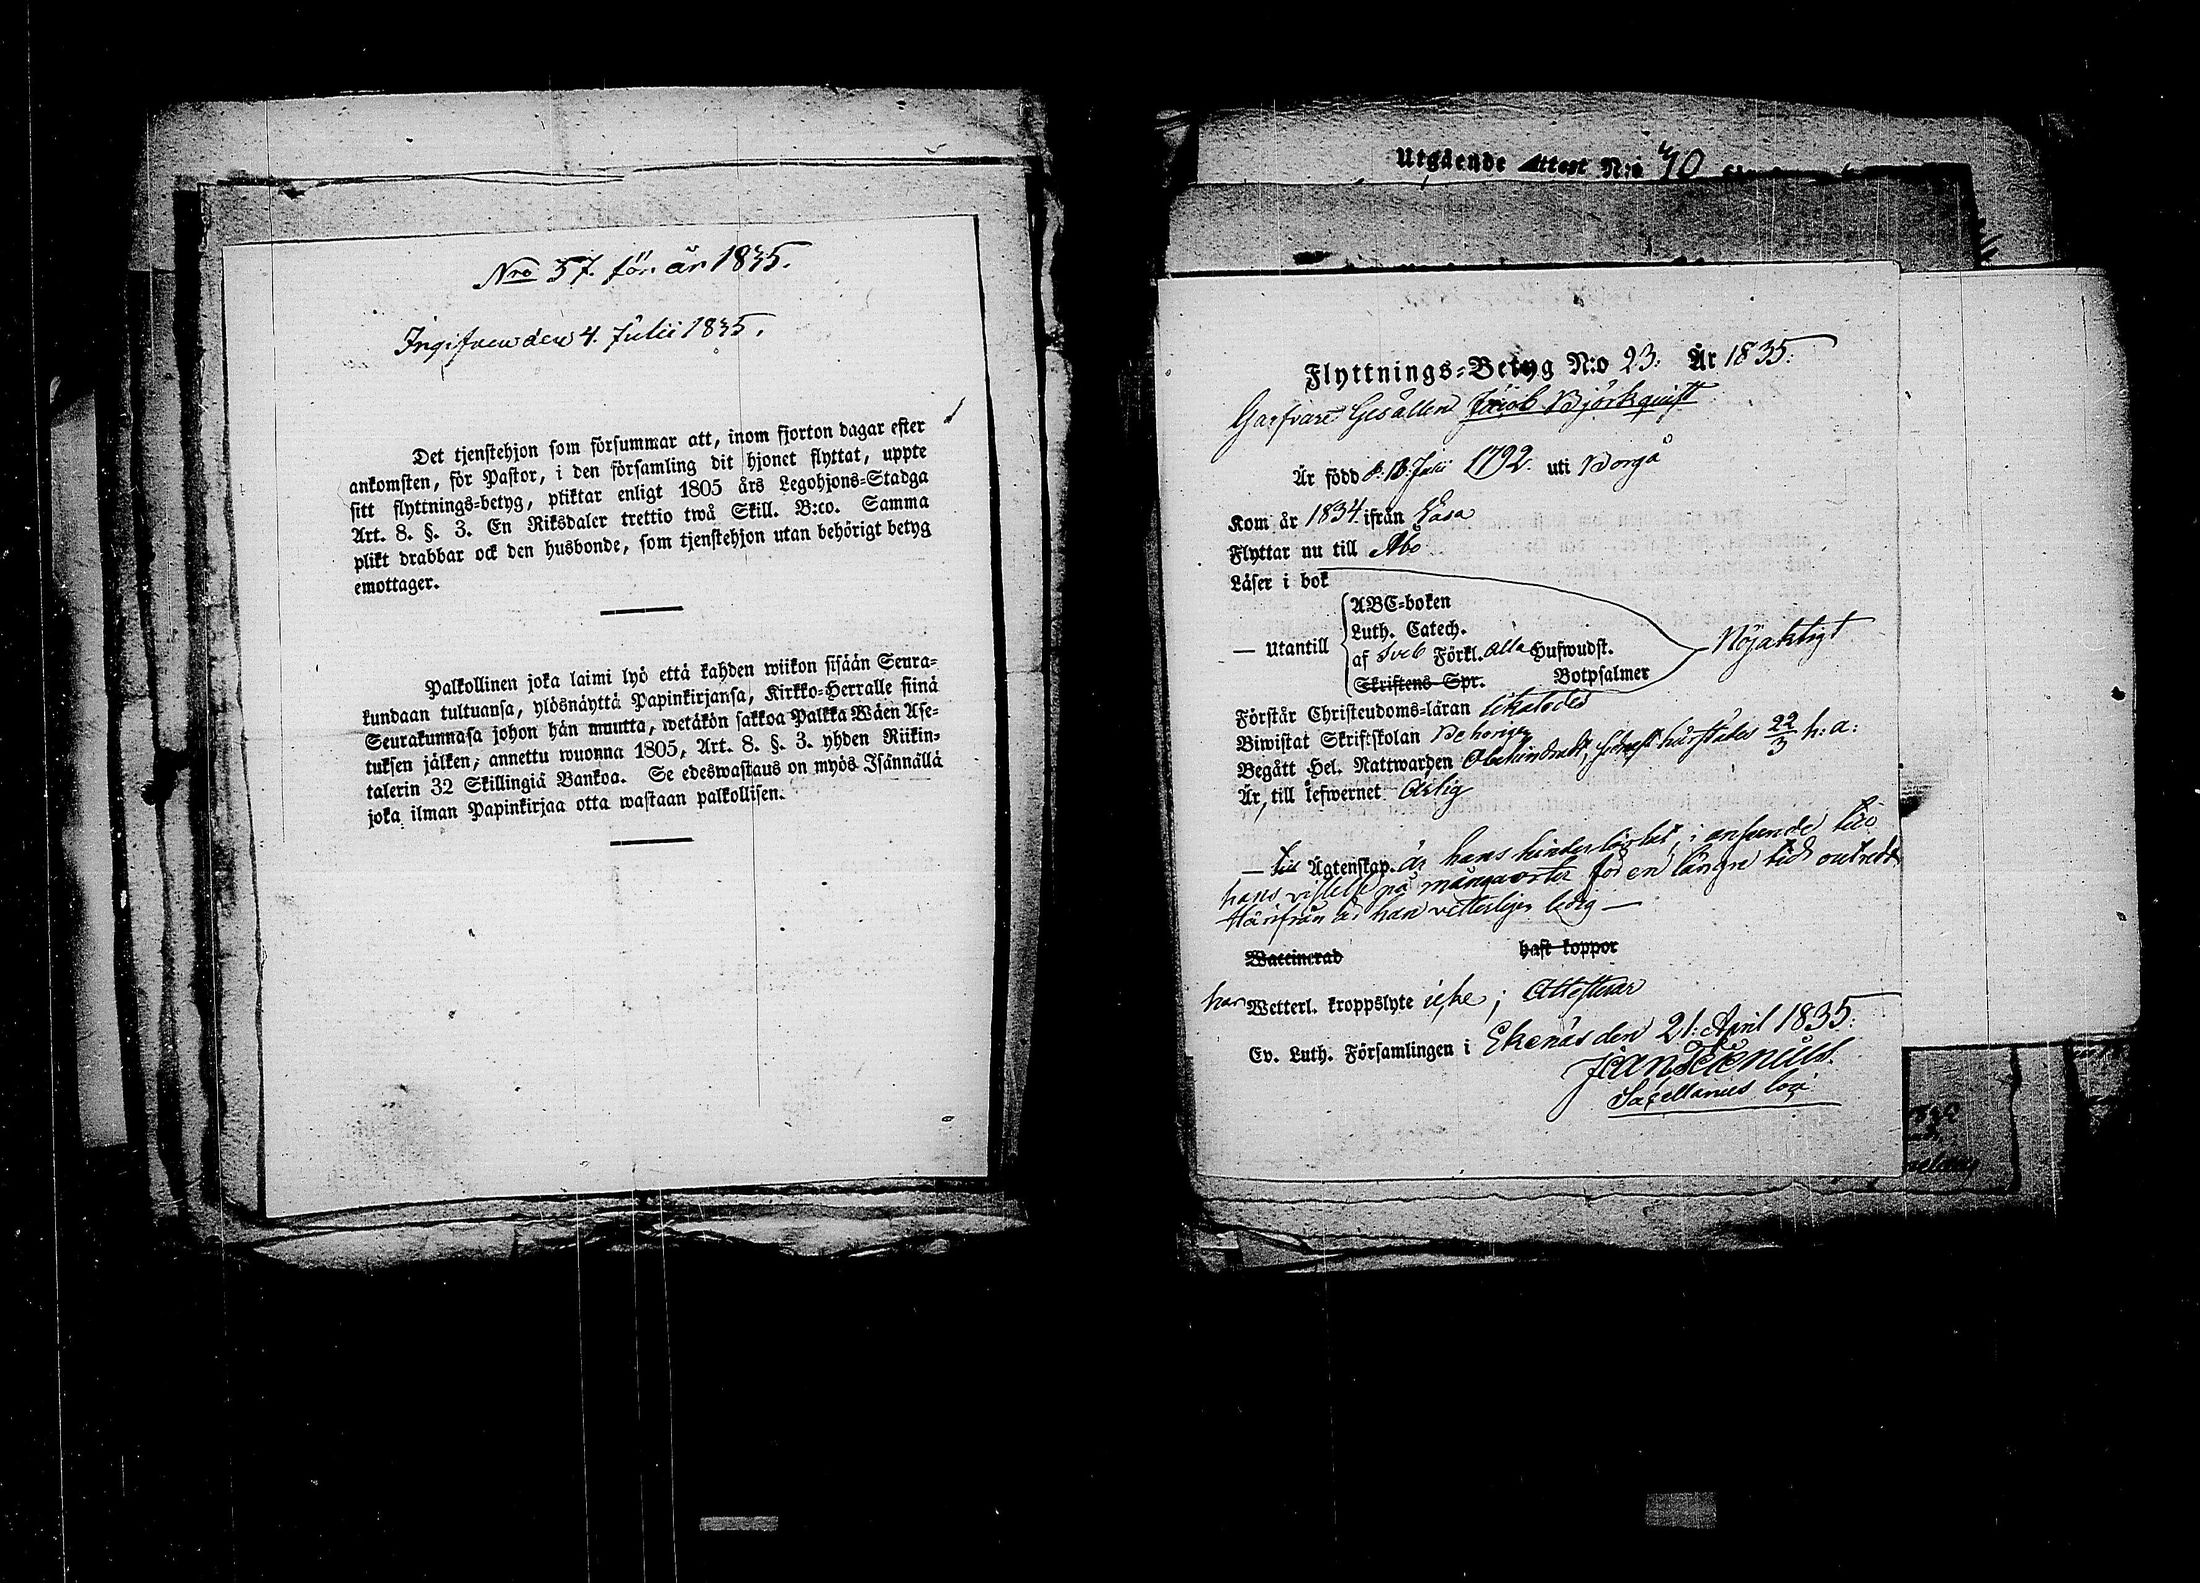 Nro 57. för år 1835.
Ingifven den 4. Julii 1835.
Det tjenstehjon som försummar att, inom fjorton dagar efter
ankomsten, för Pastor, i den församling dit hjonet flyttat, uppte
sitt flyttnings-betyg, pliktar enligt 1805 års Legohjons-Stadga
Art. 8. §. 3. En Riksdaler trettio twå Skill. B:co. Samma
plikt drabbar ock den husbonde, som tjenstehjon utan behörigt betyg
emottager.
Palkollinen joka laimi lyö että kahden wiikon sisään Seura-
kundaan tultuansa, ylösnäyttä Papinkirjansa, Kirkko-Herralle siinä
Seurakunnasa johon hän muutta, wetäkön sakkoa Palkka Wäen Ase-
tuksen jälken, annettu wuonna 1805, Art. 8. §. 3. yhden Riikin-
talerin 32 Skillingiä Bankoa. Se edeswastaus on myös Isännällä
joka ilman Papinkirjaa otta wastaan palkollisen.
Utgående Attest N:o 40
Flyttnings-Betyg N:o 23. År 1835.
Garfvare Gesällen Jacob Björkquist
Är född d. 13. Julii 1792. uti Borgå
Kom år 1834. ifrån Vasa
Flyttar nu till Åbo
Läser i bok
ABC-boken
Luth. Catech.
— Utantill af Sveb Förkl. alla Hufwudst. Nöjaktigt
Skriftens Spr. Botpsalmer
Förstår Christeudoms-läran
Biwistat Skriftskolan Behörigen
Begått Hel. Nattwarden Obehindradt, senast härstädes 22/3 h: a:
Är till lefwernet Ärlig
— till Ägtenskap. är hans hinderlöshet, i anseende till
hans vistelse på många orter för en längre tid
Härifrån är han vetterligen ledig —
Waccinerad haft koppor
har Wetterl. kroppslyte icke; Attesterar
Ev. Luth. Församlingen i Ekenäs den 21. April 1835.
Sacellanus loci